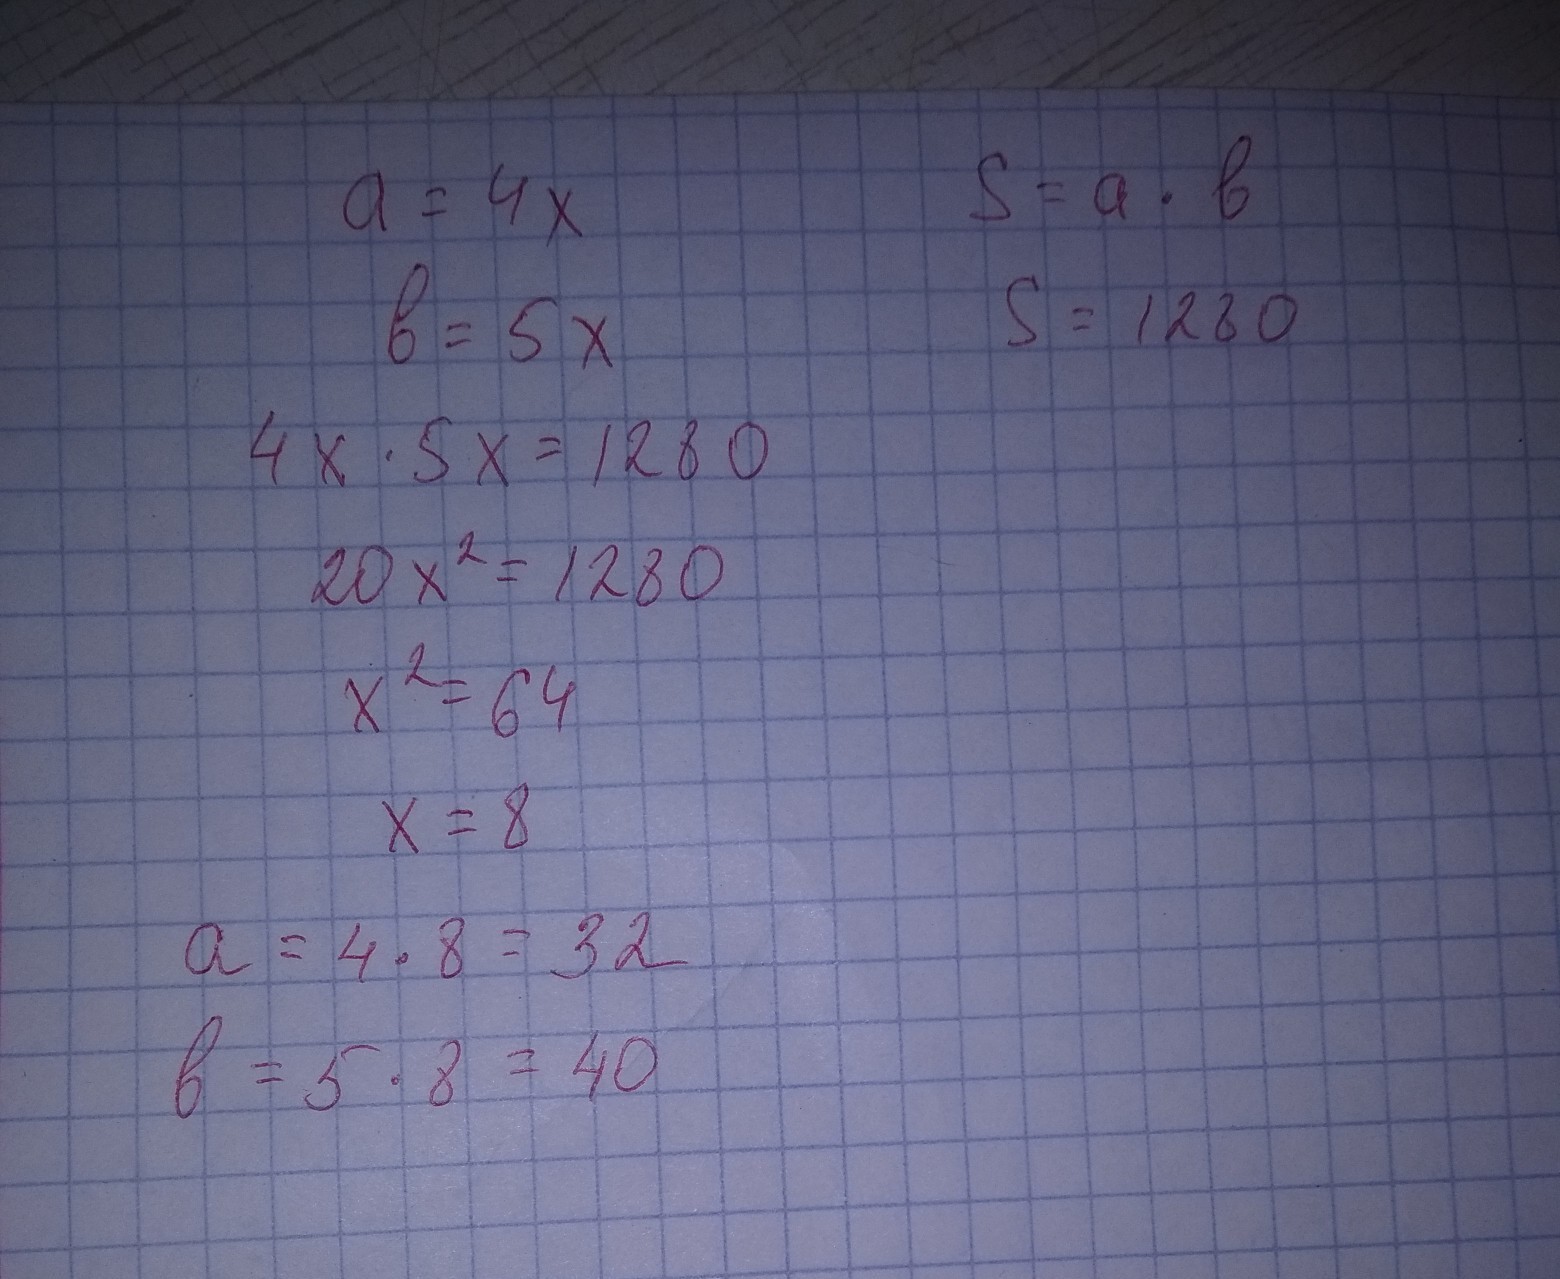 a = 4x
b = 5x
S = a · b
S = 1280
4x · 5x = 1280
20x² = 1280
x² = 64
x = 8
a = 4 · 8 = 32
b = 5 · 8 = 40